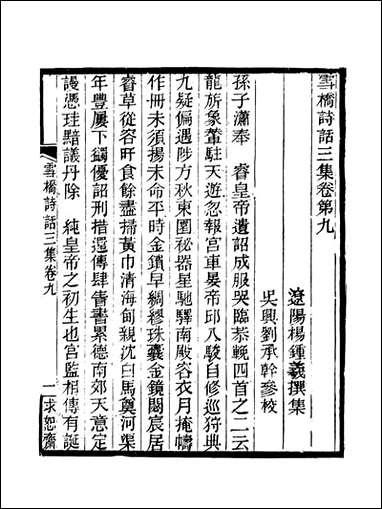 雪橋詩話三集卷第九
遼陽楊鍾羲撰集
吳興劉承幹參校
孫子瀟奉　睿皇帝遺詔成服哭臨恭輓四首之二云
龍旂象輦駐天遊忽報宮車晏帝邱八駿自修巡狩典
九疑偏遇陟方秋東園秘器星馳驛南殿容衣月掩幬
作冊未須揚末命平時金鎖早綢繆珠囊金鏡閟宸居
睿草從容旰食餘盡掃黃巾清海甸親沈白馬奠河渠
年豐屢下蠲優詔刑措還傳肆眚書累德南郊天意定
謾憑珪黯議丹除　純皇帝之初生也宮監相傳有誕
雪橋詩話三集卷九
一
求恕齋